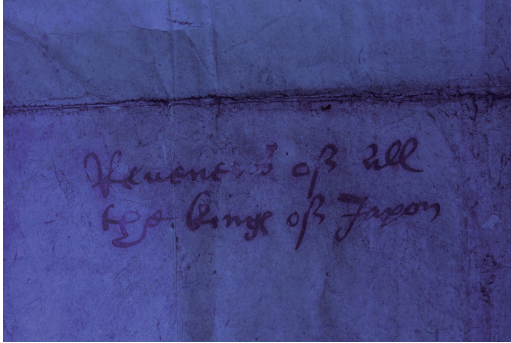 Revenewes of all
the kings of Japon